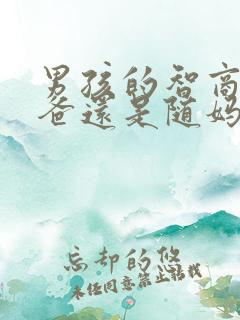 男孩的智商
爸還是随妈
忘却的悠
未经同意禁止转载